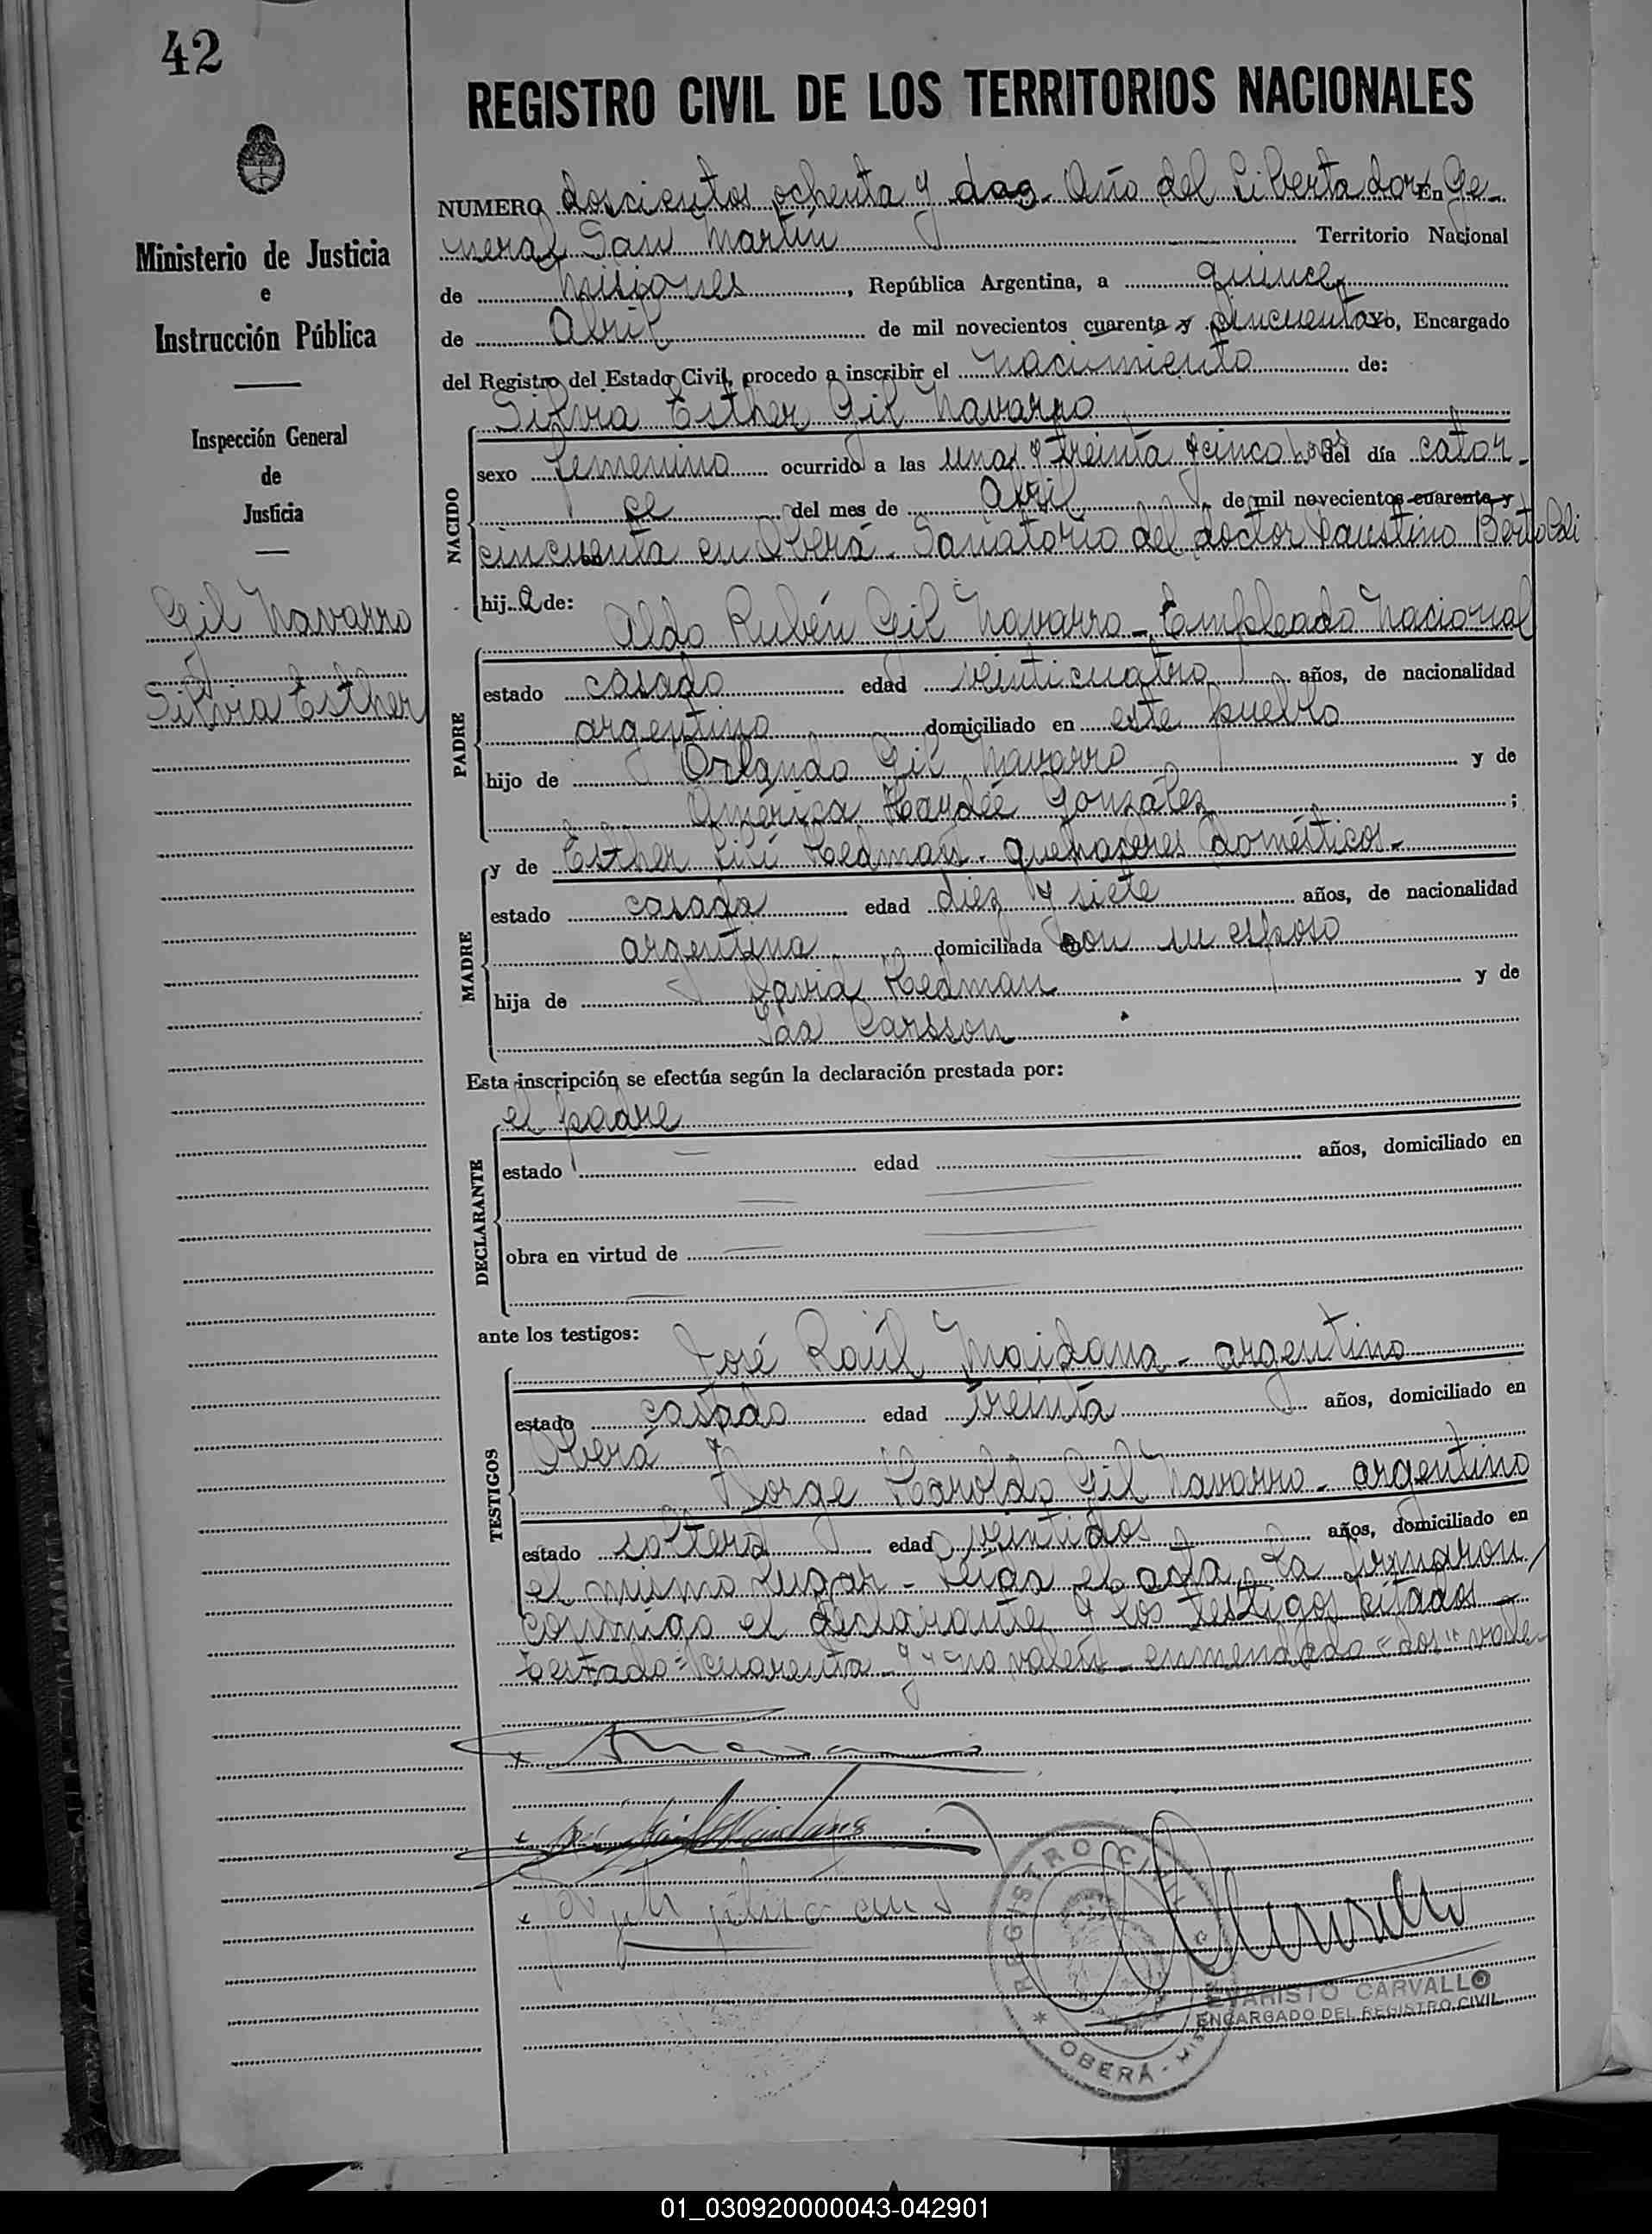 42
REGISTRO CIVIL DE LOS TERRITORIOS NACIONALES
Ministerio de Justicia
e
Instrucción Pública
Inspección General
de
Justicia
Gil Navarro
Silvia Esther
NUMERO doscientos ochenta y dos Año del Libertador En Ge-
neral San Martín Territorio Nacional
de Misiones, República Argentina, a quince
de Abril de mil novecientos cuarenta y cincuenta Yo, Encargado
del Registro del Estado Civil, procedo a inscribir el nacimiento de:
Silvia Esther Gil Navarro
NACIDO
sexo femenino ocurrido a las una y treinta y cinco hras del día cator-
ce del mes de Abril de mil novecientos cuarenta y
cincuenta en Oberá. Sanatorio del doctor Faustino Bertoldi
hija de:
PADRE
Aldo Rubén Gil Navarro - Empleado Nacional
estado casado edad veinticuatro años, de nacionalidad
argentino domiciliado en este pueblo
hijo de Orlando Gil Navarro y de
América Haydée González;
MADRE
y de Esther Hedman. quehaceres domésticos.-
estado casada edad diez y siete años, de nacionalidad
argentina domiciliada con su esposo
hija de David Hedman y de
Ida Carsson
Esta inscripción se efectúa según la declaración prestada por:
el padre
DECLARANTE
estado edad años, domiciliado en
obra en virtud de
ante los testigos:
TESTIGOS
José Raúl Maidana - argentino
estado casado edad treinta años, domiciliado en
Oberá
Jorge Haroldo Gil Navarro - argentino
estado soltero edad veintidos años, domiciliado en
el mismo lugar - Leída el acta, la firmaron
conmigo el declarante y los testigos citados -
testado = "cuarenta y" no valen - enmendado "dos" vale-
REGISTRO CIVIL
* OBERÁ -
EVARISTO CARVALLO
ENCARGADO DEL REGISTRO CIVIL
01_030920000043-042901